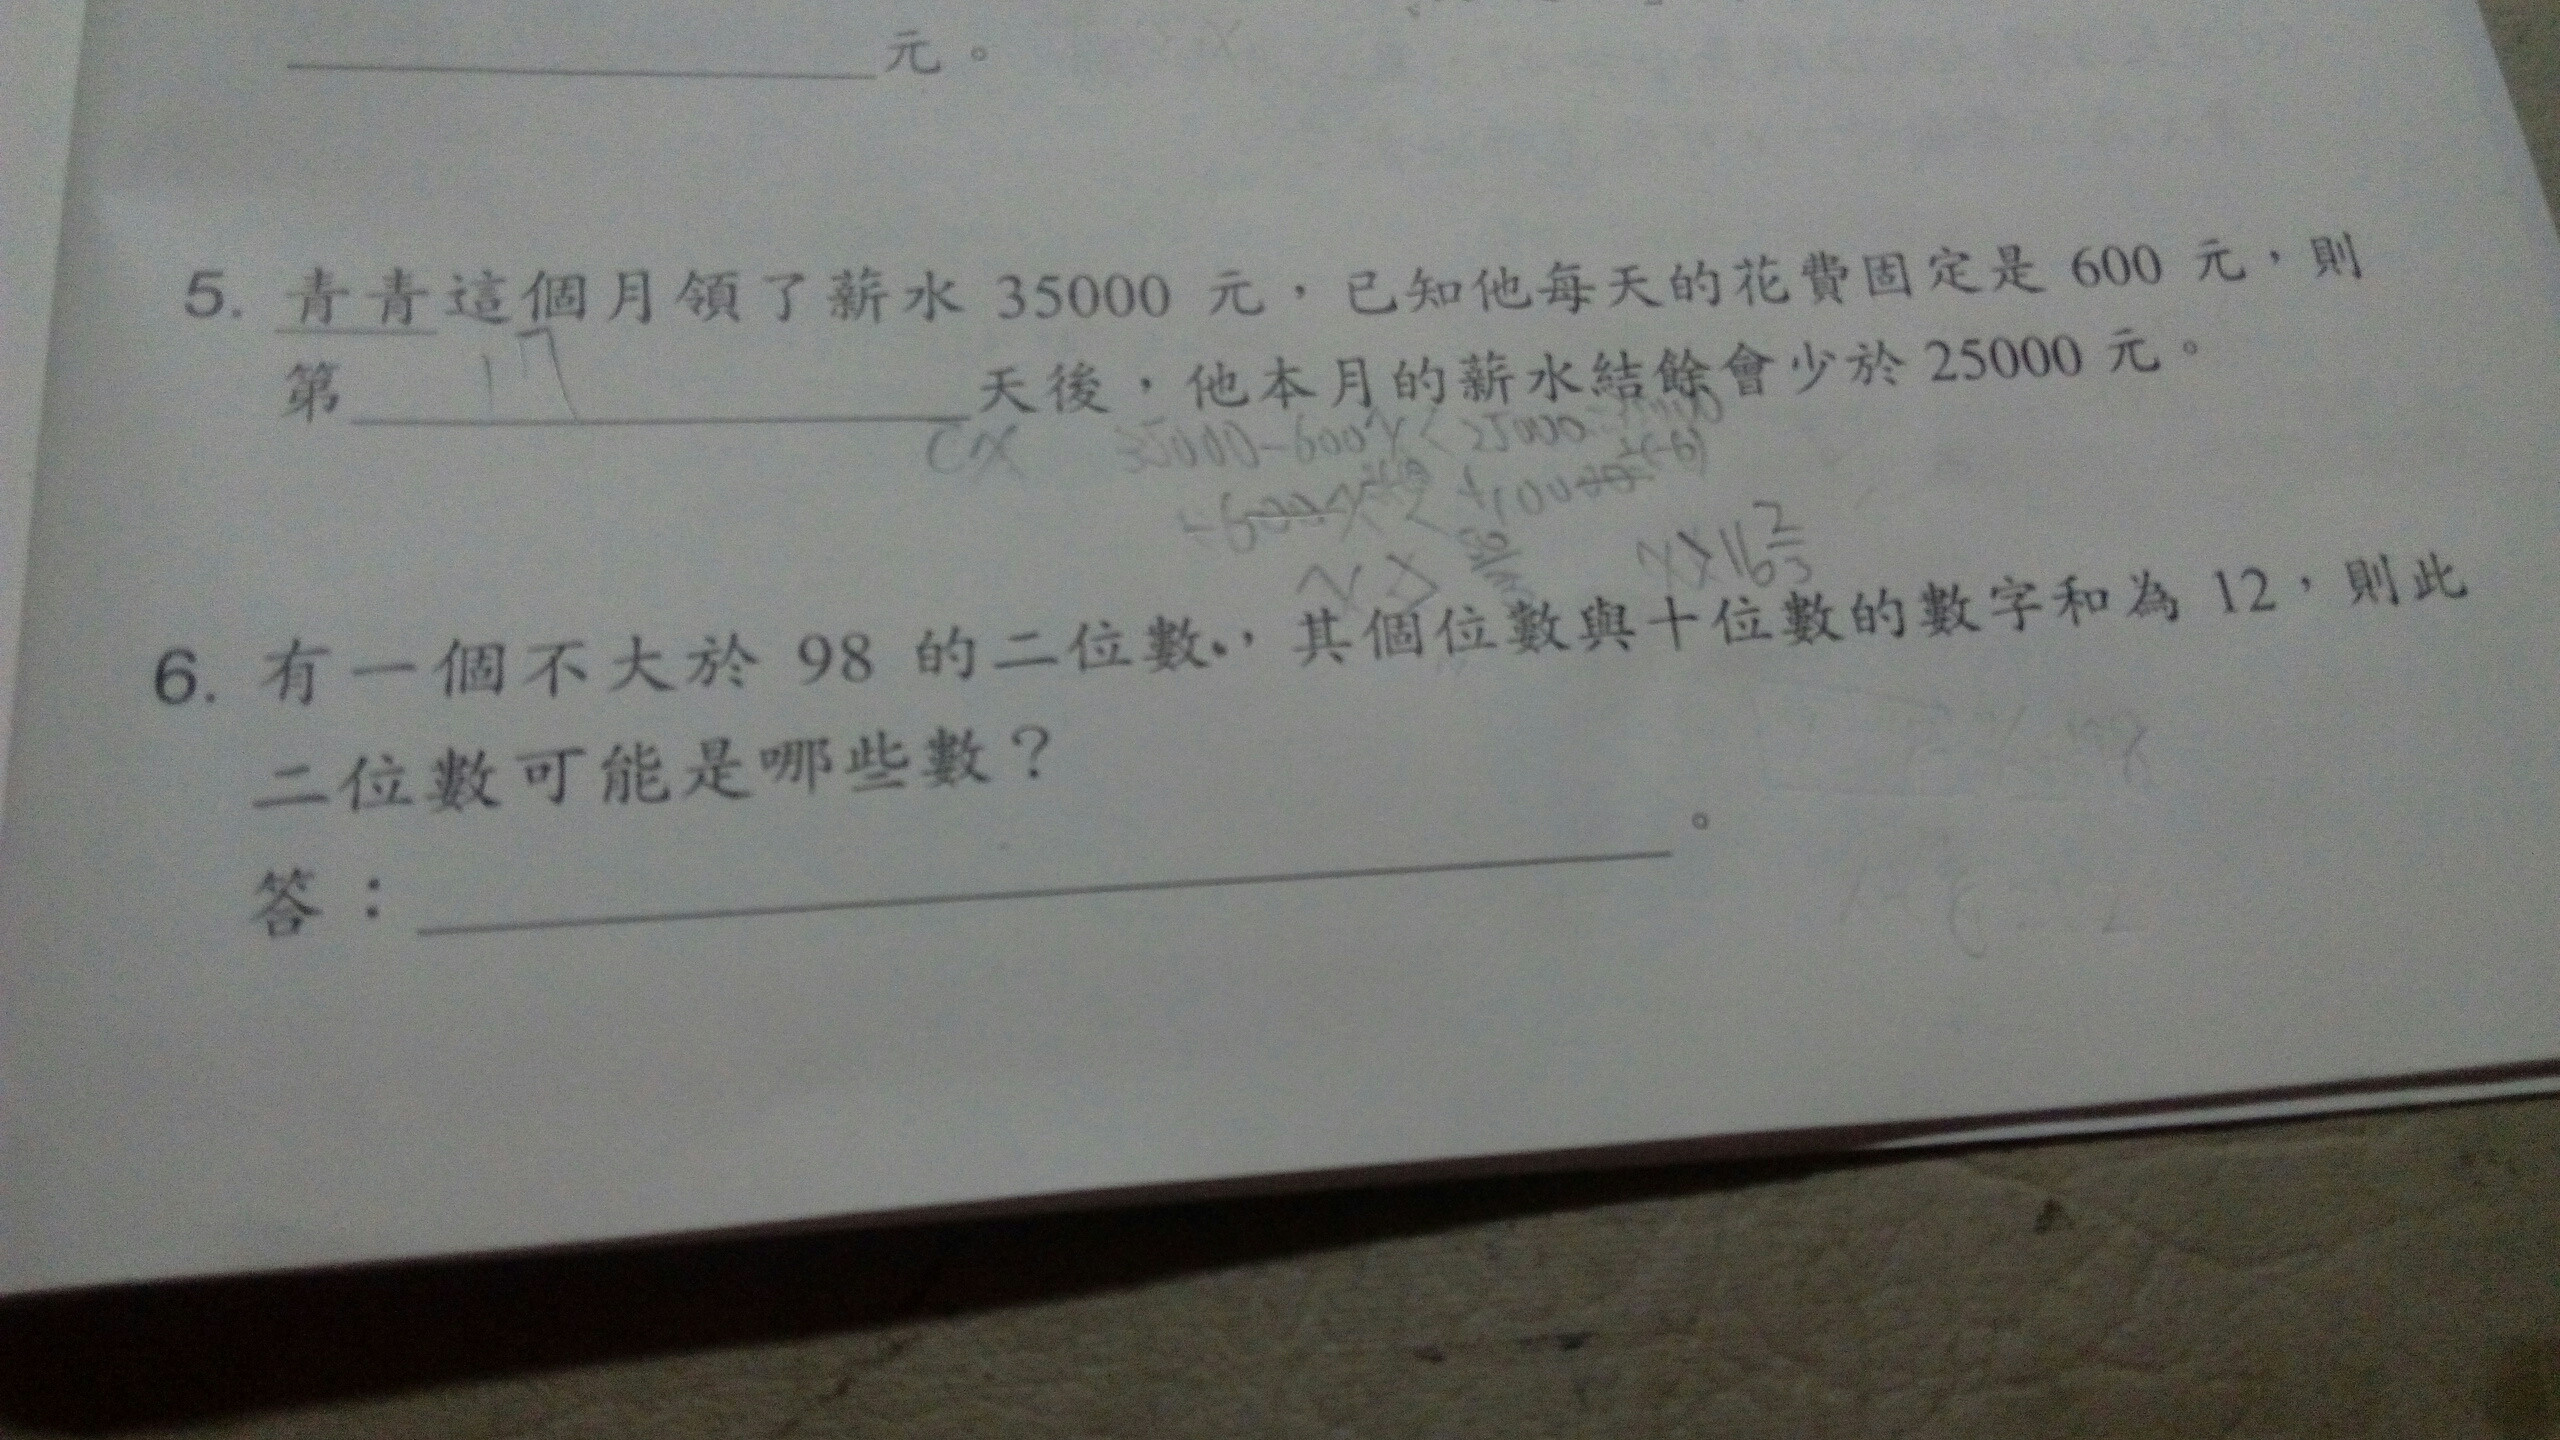 元。
5. 青青這個月領了薪水 35000 元，已知他每天的花費固定是 600 元，則
第 17 天後，他本月的薪水結餘會少於 25000 元。
35000-600x<25000
x>16 2/3
x>
6. 有一個不大於 98 的二位數，其個位數與十位數的數字和為 12，則此
二位數可能是哪些數？
答： 。